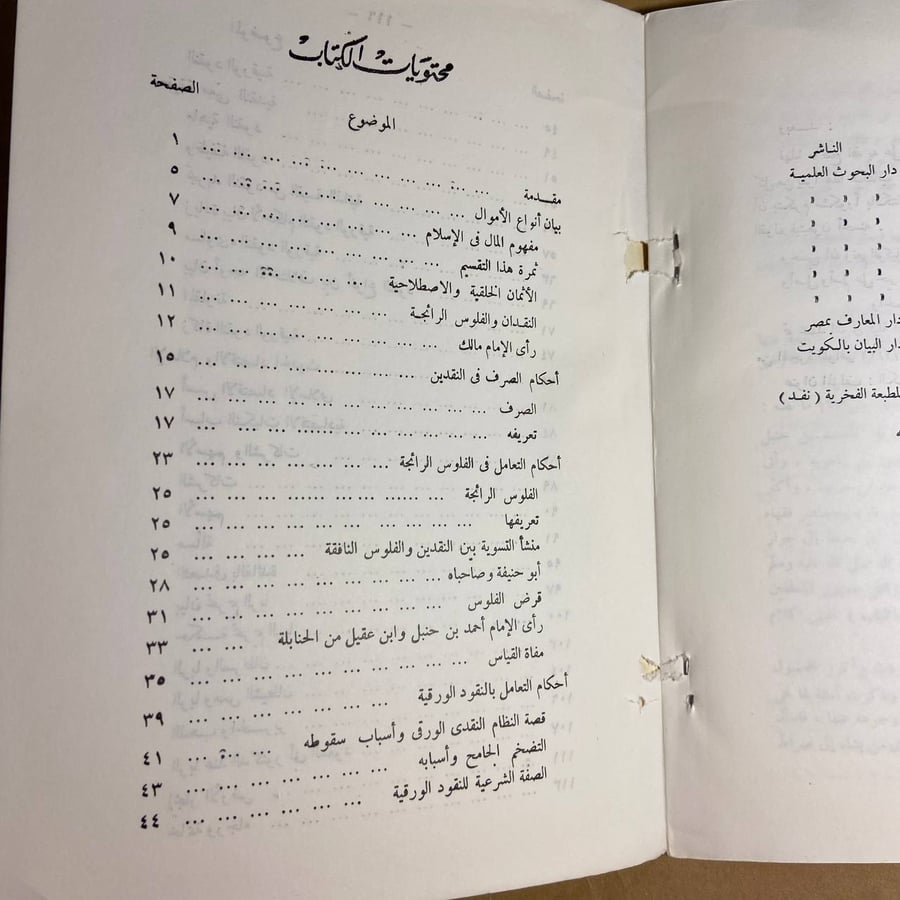 محتويات الكتاب
الموضوع الصفحة
مقدمة ... ... ... ... ... ... ... ... ١
بيان أنواع الأموال ... ... ... ... ... ... ... ٥
مفهوم المال فى الإسلام ... ... ... ... ... ... ٧
ثمرة هذا التقسيم ... ... ... ... ... ... ... ٩
الأثمان الخلقية والاصطلاحية ... ... ... ... ... ١٠
النقدان والفلوس الرائجة ... ... ... ... ... ... ١١
رأى الإمام مالك ... ... ... ... ... ... ... ١٢
أحكام الصرف فى النقدين ... ... ... ... ... ... ١٥
الصرف ... ... ... ... ... ... ... ... ١٧
تعريفه ... ... ... ... ... ... ... ... ١٧
أحكام التعامل فى الفلوس الرائجة ... ... ... ... ... ٢٣
الفلوس الرائجة ... ... ... ... ... ... ... ٢٥
تعريفها ... ... ... ... ... ... ... ... ٢٥
منشأ التسوية بين النقدين والفلوس النافقة ... ... ... ... ٢٥
أبو حنيفة وصاحباه ... ... ... ... ... ... ... ٢٨
قرض الفلوس ... ... ... ... ... ... ... ٣١
رأى الإمام أحمد بن حنبل وابن عقيل من الحنابلة ... ... ٣٣
مفاة القياس ... ... ... ... ... ... ... ٣٥
أحكام التعامل بالنقود الورقية ... ... ... ... ... ٣٩
قصة النظام النقدى الورقى وأسباب سقوطه ... ... ... ٤١
التضخم الجامح وأسبابه ... ... ... ... ... ... ٤٣
الصفة الشرعية للنقود الورقية ... ... ... ... ... ٤٤
الناشر
دار البحوث العلمية
" " "
" " "
" " "
" " "
" " "
دار المعارف بمصر
دار البيان بالكويت
( نفد )